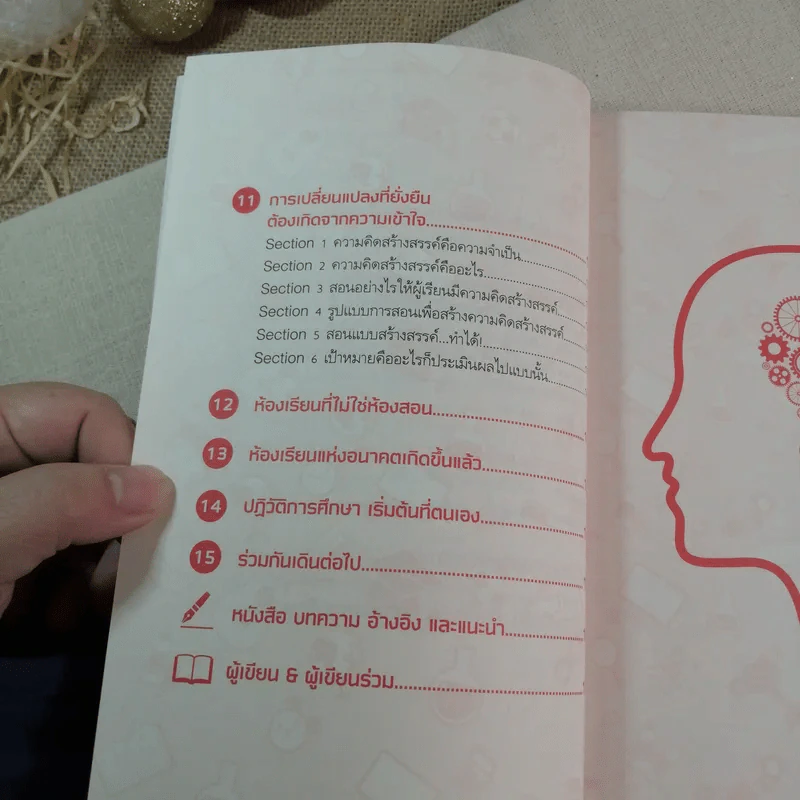 11 การเปลี่ยนแปลงที่ยั่งยืน
ต้องเกิดจากความเข้าใจ
Section 1 ความคิดสร้างสรรค์คือความจำเป็น
Section 2 ความคิดสร้างสรรค์คืออะไร
Section 3 สอนอย่างไรให้ผู้เรียนมีความคิดสร้างสรรค์
Section 4 รูปแบบการสอนเพื่อสร้างความคิดสร้างสรรค์
Section 5 สอนแบบสร้างสรรค์...ทำได้!
Section 6 เป้าหมายคืออะไรก็ประเมินผลไปแบบนั้น
12 ห้องเรียนที่ไม่ใช่ห้องสอน
13 ห้องเรียนแห่งอนาคตเกิดขึ้นแล้ว
14 ปฏิวัติการศึกษา เริ่มต้นที่ตนเอง
15 ร่วมกันเดินต่อไป
หนังสือ บทความ อ้างอิง และแนะนำ
ผู้เขียน & ผู้เขียนร่วม